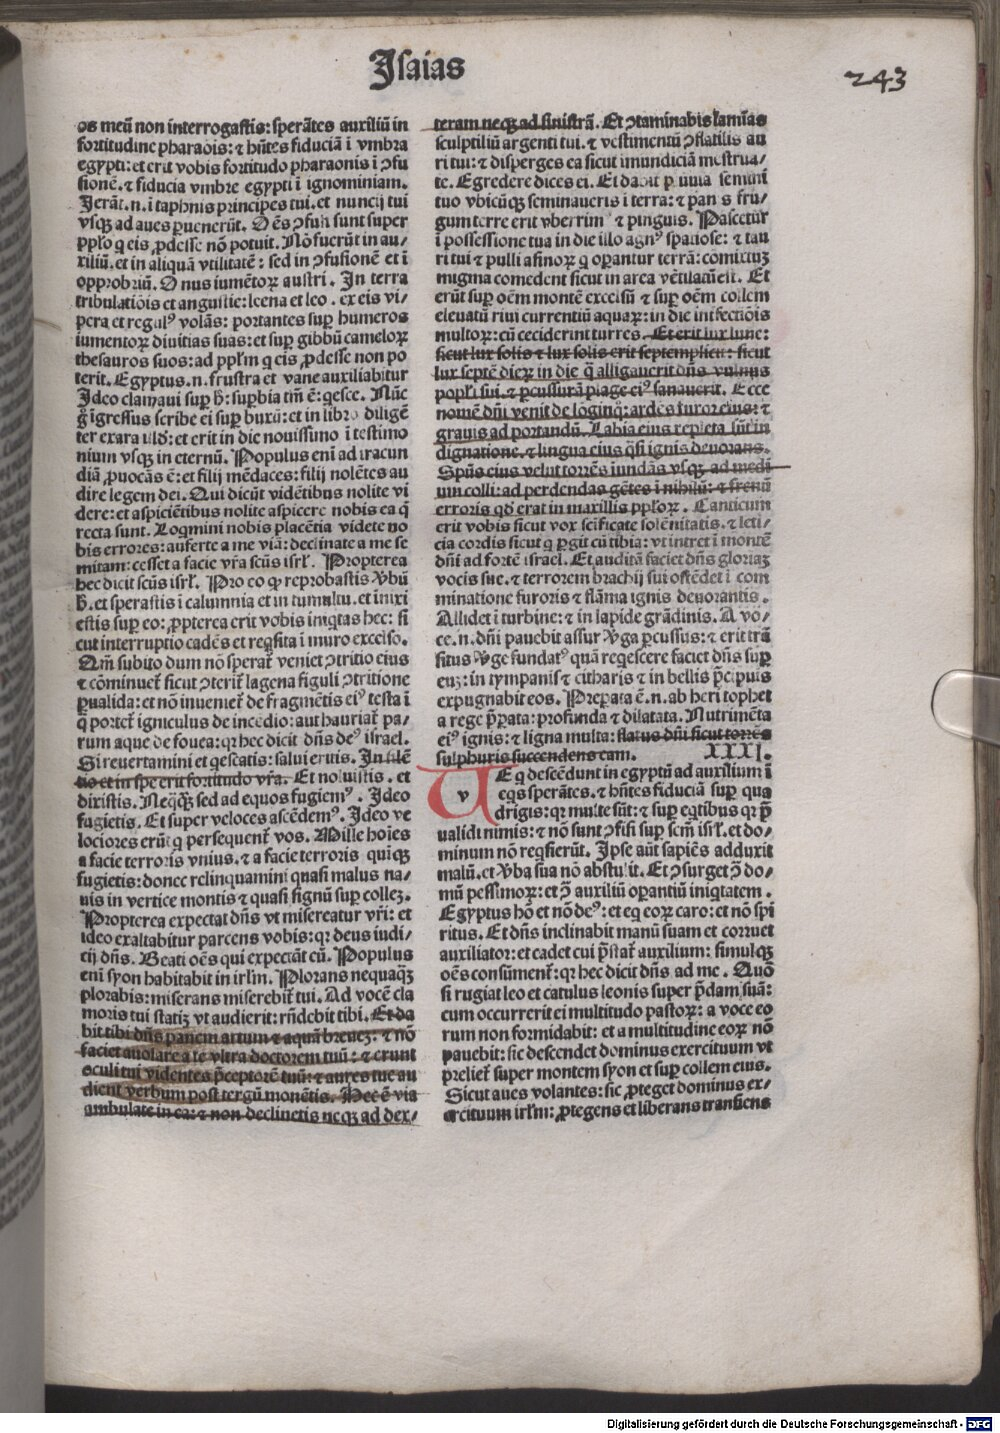 Isaias
243
os meū non interrogastis: sperātes auxiliū in
fortitudine pharaōis: ⁊ hn̄tes fiduciā ī vmbra
egypti: et erit vobis fortitudo pharaonis ī ↄfu
sionē. ⁊ fiducia vmbre egypti ī ignominiam.
Ierāt. n. ī taphnis principes tui. et nuncij tui
vsqꝫ ad aues ꝑuenerūt. Oēs ↄfusi sunt super
pplo q eis ꝓdesse nō potuit. Nō fuerūt in au⸗
xiliū. et in aliquā vtilitatē: sed in ↄfusionē et ī
opprobriū. Onus iumētoꝝ austri. In terra
tribulatiōis et angustie: leena et leo. ex eis vi⸗
pera et regulꝰ volās: portantes suꝑ humeros
iumentoꝝ diuitias suas: et suꝑ gibbū cameloꝝ
thesauros suos: ad pplm̄ q eis ꝓdesse non po
terit. Egyptus. n. frustra et vane auxiliabitur
Ideo clamaui suꝑ h̄: suꝑbia tm̄ ē: qesce. Nūc
gͦ īgressus scribe ei suꝑ buxū: et in libro diligē
ter exara illd̄: et erit in die nouissimo ī testimo
nium vsqꝫ in eternū. Populus enī ad iracun
diā ꝓuocās ē: et filij mēdaces: filij nolētes au
dire legem dei. Qui dicūt vidētibus nolite vi
dere: et aspiciētibus nolite aspicere nobis ea q̄
recta sunt. Loqmini nobis placētia videte no
bis errores: auferte a me viā: declinate a me se
mitam: cesset a facie vr̄a scūs isrl̄. Propterea
hec dicit scūs isrl̄. Pro eo ꝙ reprobastis v̄bū
h̄. et sperastis ī calumnia et in tumultu. et īnixi
estis suꝑ eo: ꝓpterea erit vobis iniqtas hec: si
cut interruptio cadēs et reqsita ī muro excelso.
Qm̄ subito dum nō speratʳ veniet ↄtritio eius
⁊ cōminuetʳ sicut ↄteritʳ lagena figuli ↄtritione
p̄ualida: et nō inuenietʳ de fragmētis eiꝰ testa ī
q̄ portetʳ igniculus de incēdio: aut hauriatʳ pa⸗
rum aque de fouea: qꝛ hec dicit dn̄s deꝰ israel.
Si reuertamini et qescatis: salui eritis. In silē
tio et in spe erit fortitudo vr̄a. Et noluistis. et
dixistis. Neq̄qꝫ sed ad equos fugiemꝰ. Ideo
fugietis. Et super veloces ascēdemꝰ. Ideo ve
lociores erūt q persequentʳ vos. Mille hoīes
a facie terroris vnius. ⁊ a facie terroris quīqꝫ
fugietis: donec relinquamini quasi malus na⸗
uis in vertice montis ⁊ quasi signū suꝑ collem.
Propterea expectat dn̄s vt misereatur vr̄i: et
ideo exaltabitur parcens vobis: qꝛ deus iudi⸗
cij dn̄s. Beati oēs qui expectāt eū. Populus
enī syon habitabit in irlm̄. Plorans nequaqꝫ
plorabis: miserans miserebitʳ tui. Ad vocē cla
moris tui statiꝫ vt audierit: rn̄debit tibi. Et da
bit tibi dn̄s panem artum ⁊ aquā breueꝫ: ⁊ nō
faciet auolare a te vltra doctorem tuū: ⁊ erunt
oculi tui videntes p̄ceptorē tuū: ⁊ aures tue au
dient verbum post tergū monētis. Hec ē via
ambulate in ea: ⁊ non declinetis neqꝫ ad dex⸗
teram neqꝫ ad sinistrā. Et ↄtaminabis lamīas
sculptiliū argenti tui. ⁊ vestimentū ↄflatilis au
ri tui: ⁊ disperges ea sicut īmundiciā mēstrua⸗
te. Egredere dices ei. Et dabit pluuia semini
tuo vbicūqꝫ seminaueris ī terra: ⁊ panis fru⸗
gum terre erit vberrimꝰ ⁊ pinguis. Pascetur
ī possessione tua in die illo agnꝰ spaciose: ⁊ tau
ri tui ⁊ pulli asinoꝝ q oꝑantur terrā: cōmixtuꝫ
migma comedent sicut in area vētilatū est. Et
erūt suꝑ oēm montē excelsū ⁊ suꝑ oēm collem
eleuatū riui currentiū aquaꝝ: in die interfectiōis
multoꝝ: cū ceciderint turres. Et erit lux lune:
sicut lux solis ⁊ lux solis erit septempliciter: sicut
lux septē dieꝝ in die q̄ alligauerit dn̄s vulnus
popl̄i sui. ⁊ ꝑcussurā plage eiꝰ sanauerit. Ecce
nomē dn̄i venit de lōginq̄: ardēs furor eius: ⁊
grauis ad portandū. Labia eius repleta sūt in
dignatione. ⁊ lingua eius q̄si ignis deuorans.
Spūs eius velut torrēs iundās vsqꝫ ad medi
um colli: ad perdendas gētes ī nihilū: ⁊ frenū
erroris qd̄ erat in maxillis pploꝝ. Canticum
erit vobis sicut vox scīficate solēnitatis. ⁊ leti⸗
cia cordis sicut q ꝑgit cū tibia: vt intret ī montē
dn̄i ad fortē israel. Et auditā faciet dn̄s gloriaꝫ
vocis sue. ⁊ terrorem brachij sui ostēdet ī com
minatione furoris ⁊ flāma ignis deuorantis.
Allidet ī turbine: ⁊ in lapide grādinis. A vo⸗
ce. n. dn̄i pauebit assur v̄ga ꝑcussus: ⁊ erit trā
situs v̄ge fundatꝰ quā reqescere faciet dn̄s suꝑ
euꝫ: in tympanis ⁊ citharis ⁊ in bellis p̄cipuis
expugnabit eos. Preparata ē. n. ab heri tophet
a rege p̄parata: profunda ⁊ dilatata. Nutrimēta
eiꝰ ignis: ⁊ ligna multa: flatus dn̄i sicut torrēs
sulphuris succendens eam. XXXI.
Ve q descēdunt in egyptū ad auxilium ī
eqs sperātes. ⁊ hn̄tes fiduciā suꝑ qua
drigis: qꝛ multe sūt: ⁊ suꝑ eqtibus qꝛ p̄
ualidi nimis: ⁊ nō sunt ↄfisi suꝑ scm̄ isrl̄. et do⸗
minum nō reqsierūt. Ipse aūt sapiēs adduxit
malū. et v̄ba sua nō abstulit. Et ↄsurget ↄ̄ do⸗
mū pessimoꝝ: et ↄ̄ auxiliū oꝑantiū iniqtatem.
Egyptus hō et nō deꝰ: et eq eoꝝ caro: et nō spi
ritus. Et dn̄s inclinabit manū suam et corruet
auxiliator: et cadet cui p̄statʳ auxilium: simulqꝫ
oēs consūmentʳ: qꝛ hec dicit dn̄s ad me. Quō
si rugiat leo et catulus leonis super p̄dam suā:
cum occurrerit ei multitudo pastoꝝ: a voce eo
rum non formidabit: et a multitudine eoꝝ nō
pauebit: sic descendet dominus exercituum vt
prelietʳ super montem syon et suꝑ collem eius.
Sicut aues volantes: sic ꝓteget dominus ex⸗
ercituum irlm̄: ꝓtegens et liberans transiens
Digitalisierung gefördert durch die Deutsche Forschungsgemeinschaft - DFG